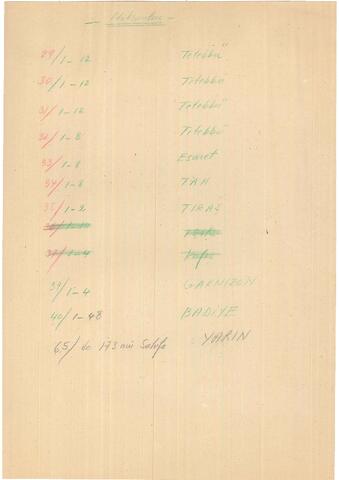 29/1-12 Tetebbü
30/1-12 Tetebbü
31/1-12 Tetebbü
32/1-8 Tetebbü
33/1-8 Esaret
34/1-8 TAH
35/1-2 TIRAŞ
39/1-4 GARNİZON
40/1-48 BADİYE
65/ de 173 nü Sahife YARIN